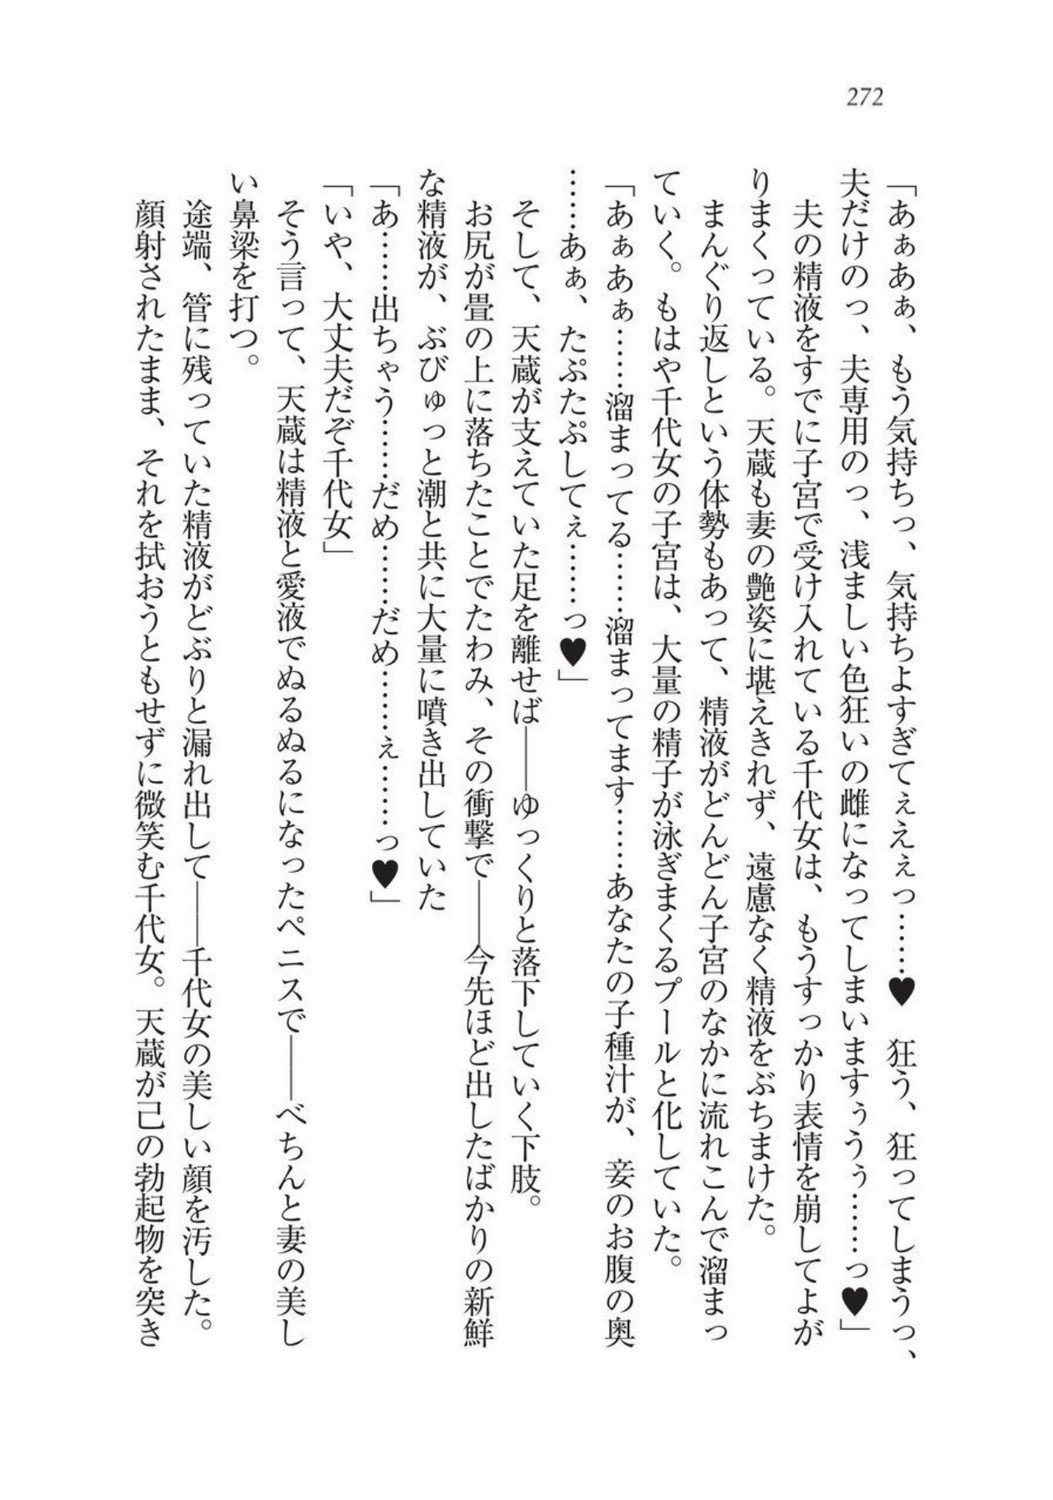 272
「あぁあぁ、もう気持ちっ、気持ちよすぎてぇえぇっ……♥　狂う、狂ってしまうっ、
夫だけのっ、夫専用のっ、浅ましい色狂いの雌になってしまいますぅうぅ……っ♥」
　夫の精液をすでに子宮で受け入れている千代女は、もうすっかり表情を崩してよが
りまくっている。天蔵も妻の艶姿に堪えきれず、遠慮なく精液をぶちまけた。
　まんぐり返しという体勢もあって、精液がどんどん子宮のなかに流れこんで溜まっ
ていく。もはや千代女の子宮は、大量の精子が泳ぎまくるプールと化していた。
「あぁあぁ……溜まってる……溜まってます……あなたの子種汁が、妾のお腹の奥
……あぁ、たぷたぷしてぇ……っ♥」
　そして、天蔵が支えていた足を離せば――ゆっくりと落下していく下肢。
　お尻が畳の上に落ちたことでたわみ、その衝撃で――今先ほど出したばかりの新鮮
な精液が、ぶびゅっと潮と共に大量に噴き出していた
「あ……出ちゃう……だめ……だめ……ぇ……っ♥」
「いや、大丈夫だぞ千代女」
　そう言って、天蔵は精液と愛液でぬるぬるになったペニスで――べちんと妻の美し
い鼻梁を打つ。
　途端、管に残っていた精液がどぶりと漏れ出して――千代女の美しい顔を汚した。
　顔射されたまま、それを拭おうともせずに微笑む千代女。天蔵が己の勃起物を突き